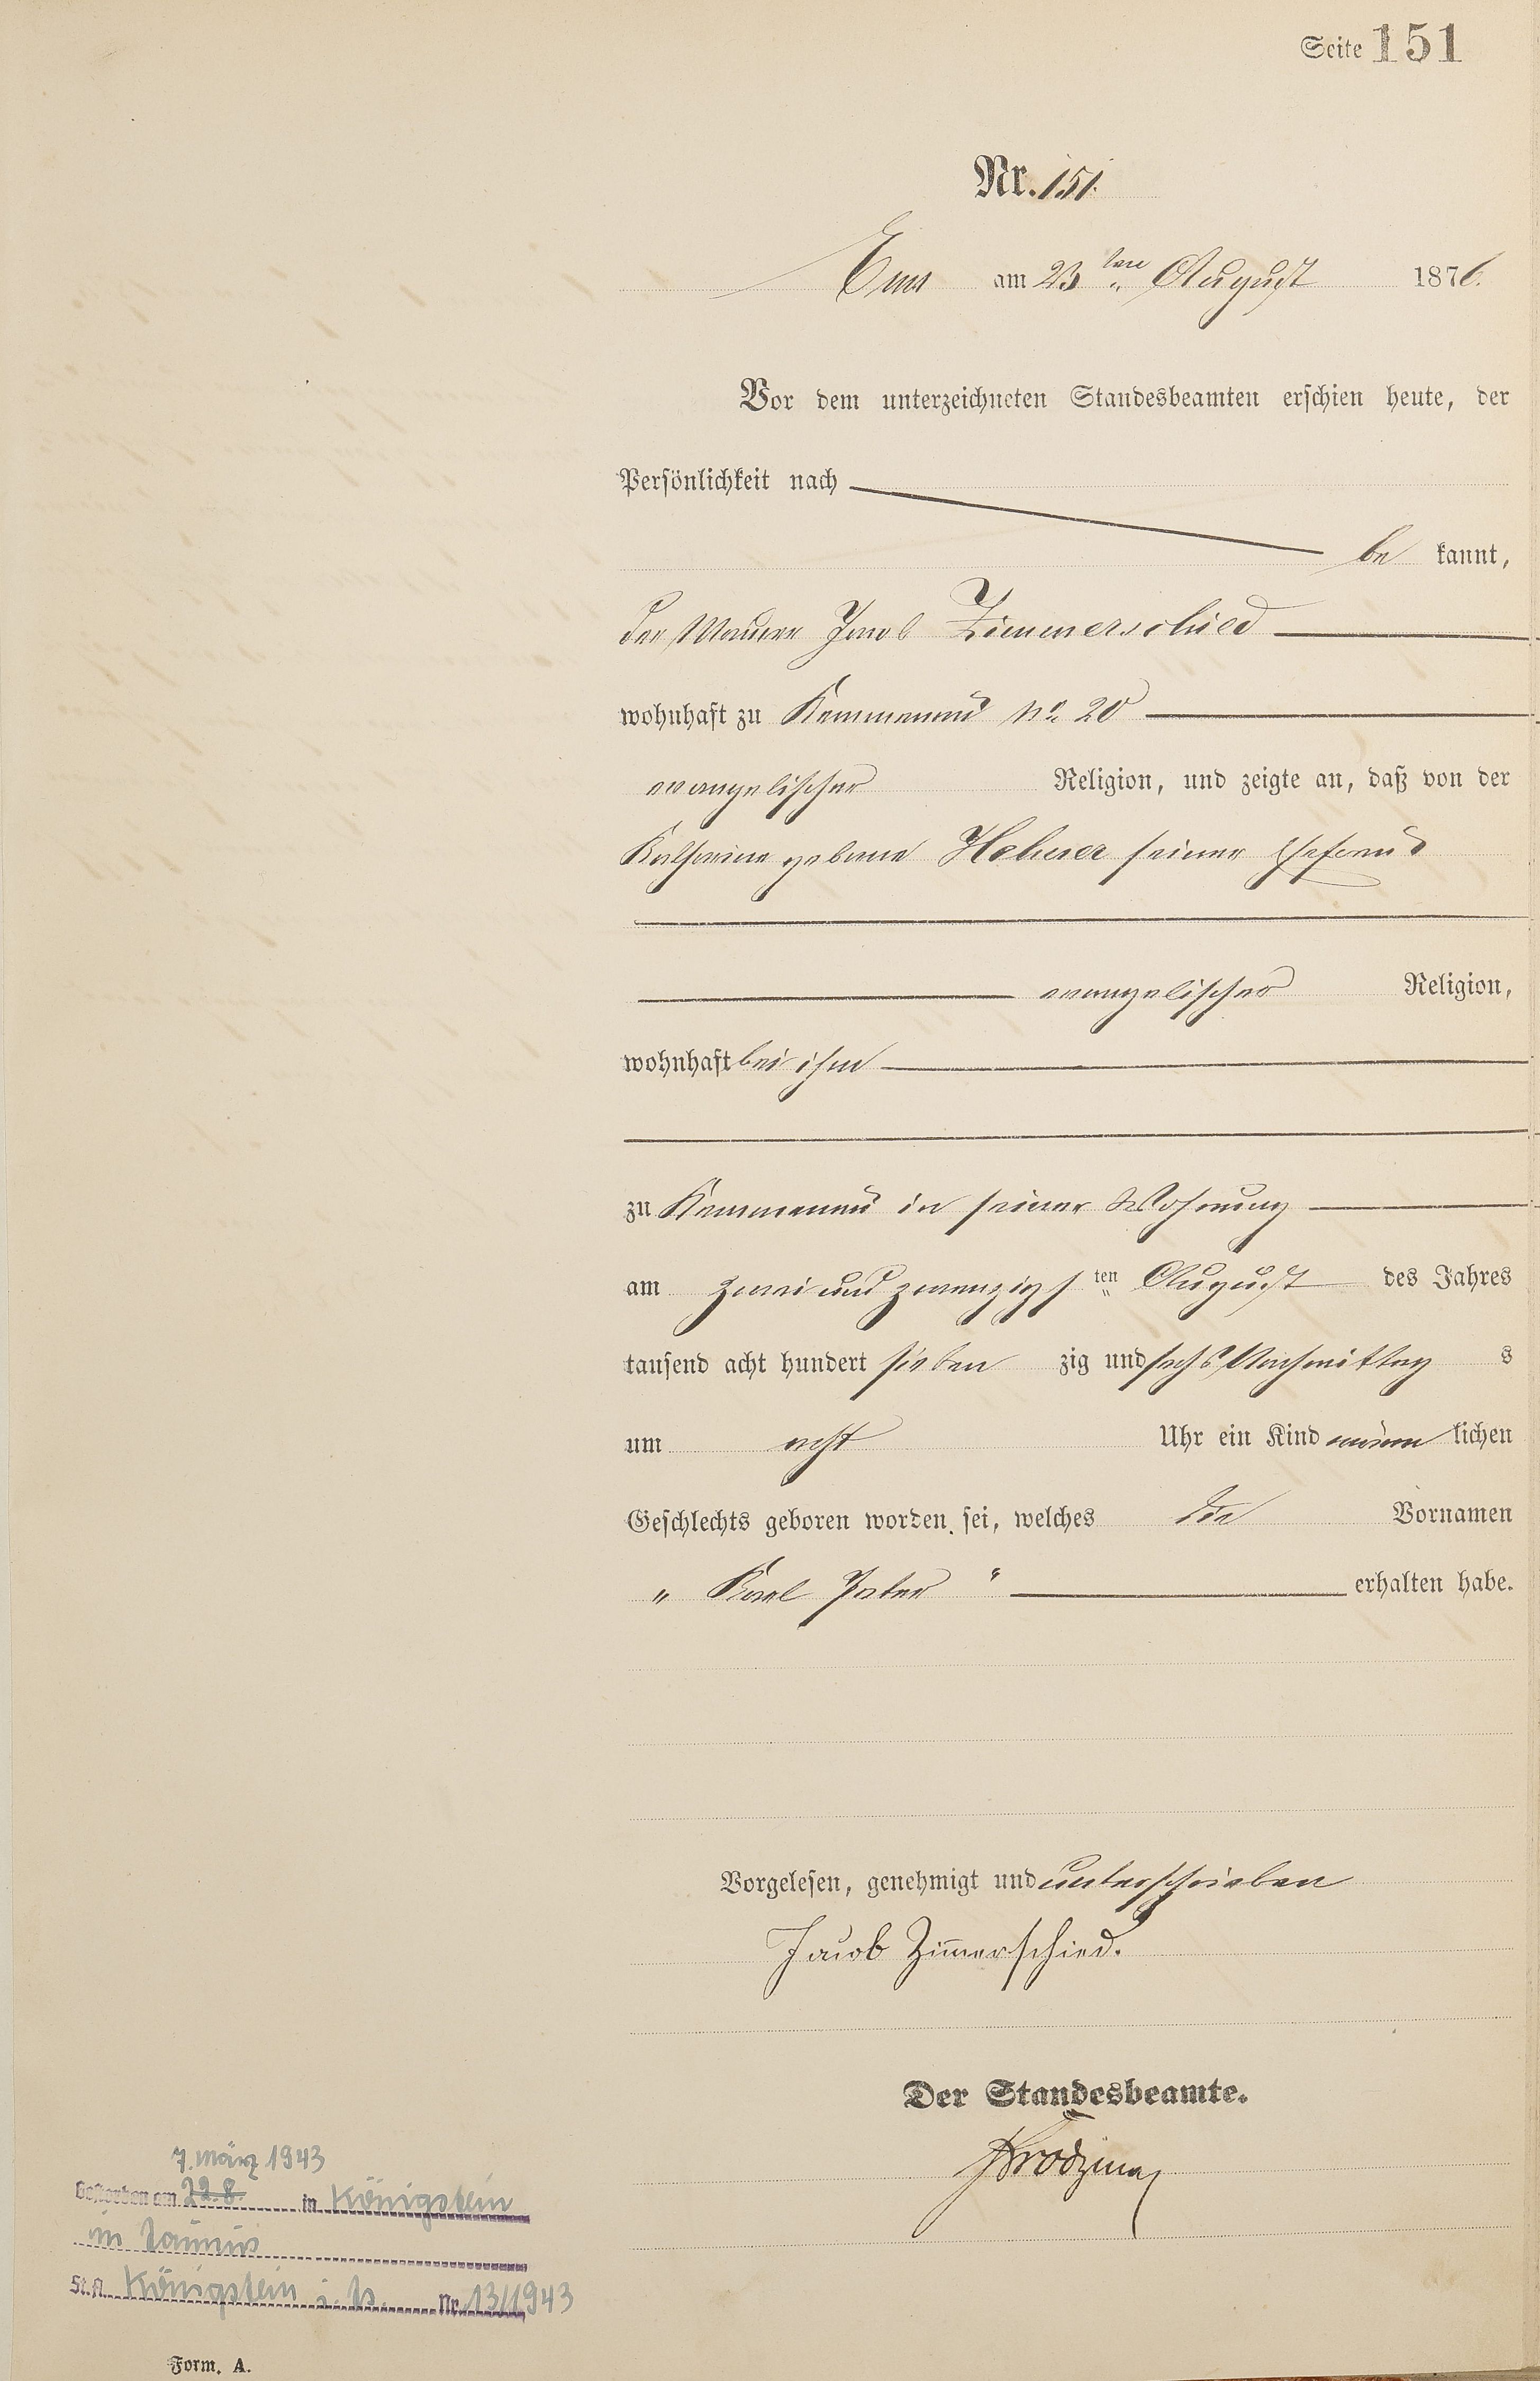 Seite 151
Nr. 151.
Ems am 23ten August 1876.
Vor dem unterzeichneten Standesbeamten erschien heute, der
Persönlichkeit nach
be kannt,
der Maurer Jacob Zimmerschied
wohnhaft zu Kemmenau No 20
evangelischer Religion, und zeigte an, daß von der
Katharine geborne Hehner seiner Ehefrau
evangelischer Religion,
wohnhaft bei ihm
zu Kemmenau in seiner Wohnung
am zwei und zwanzigsten August des Jahres
tausend acht hundert sieben zig und sechs Nachmittag s
um acht Uhr ein Kind männ lichen
Geschlechts geboren worden sei, welches die Vornamen
„ Karl Peter “ erhalten habe.
Vorgelesen, genehmigt und unterschrieben
Jacob Zimerschied.
Der Standesbeamte.
7. März 1943
Gestorben am 22.8. in Königstein
im Taunus
St.A. Königstein i. Ts. Nr. 13/1943
Form. A.